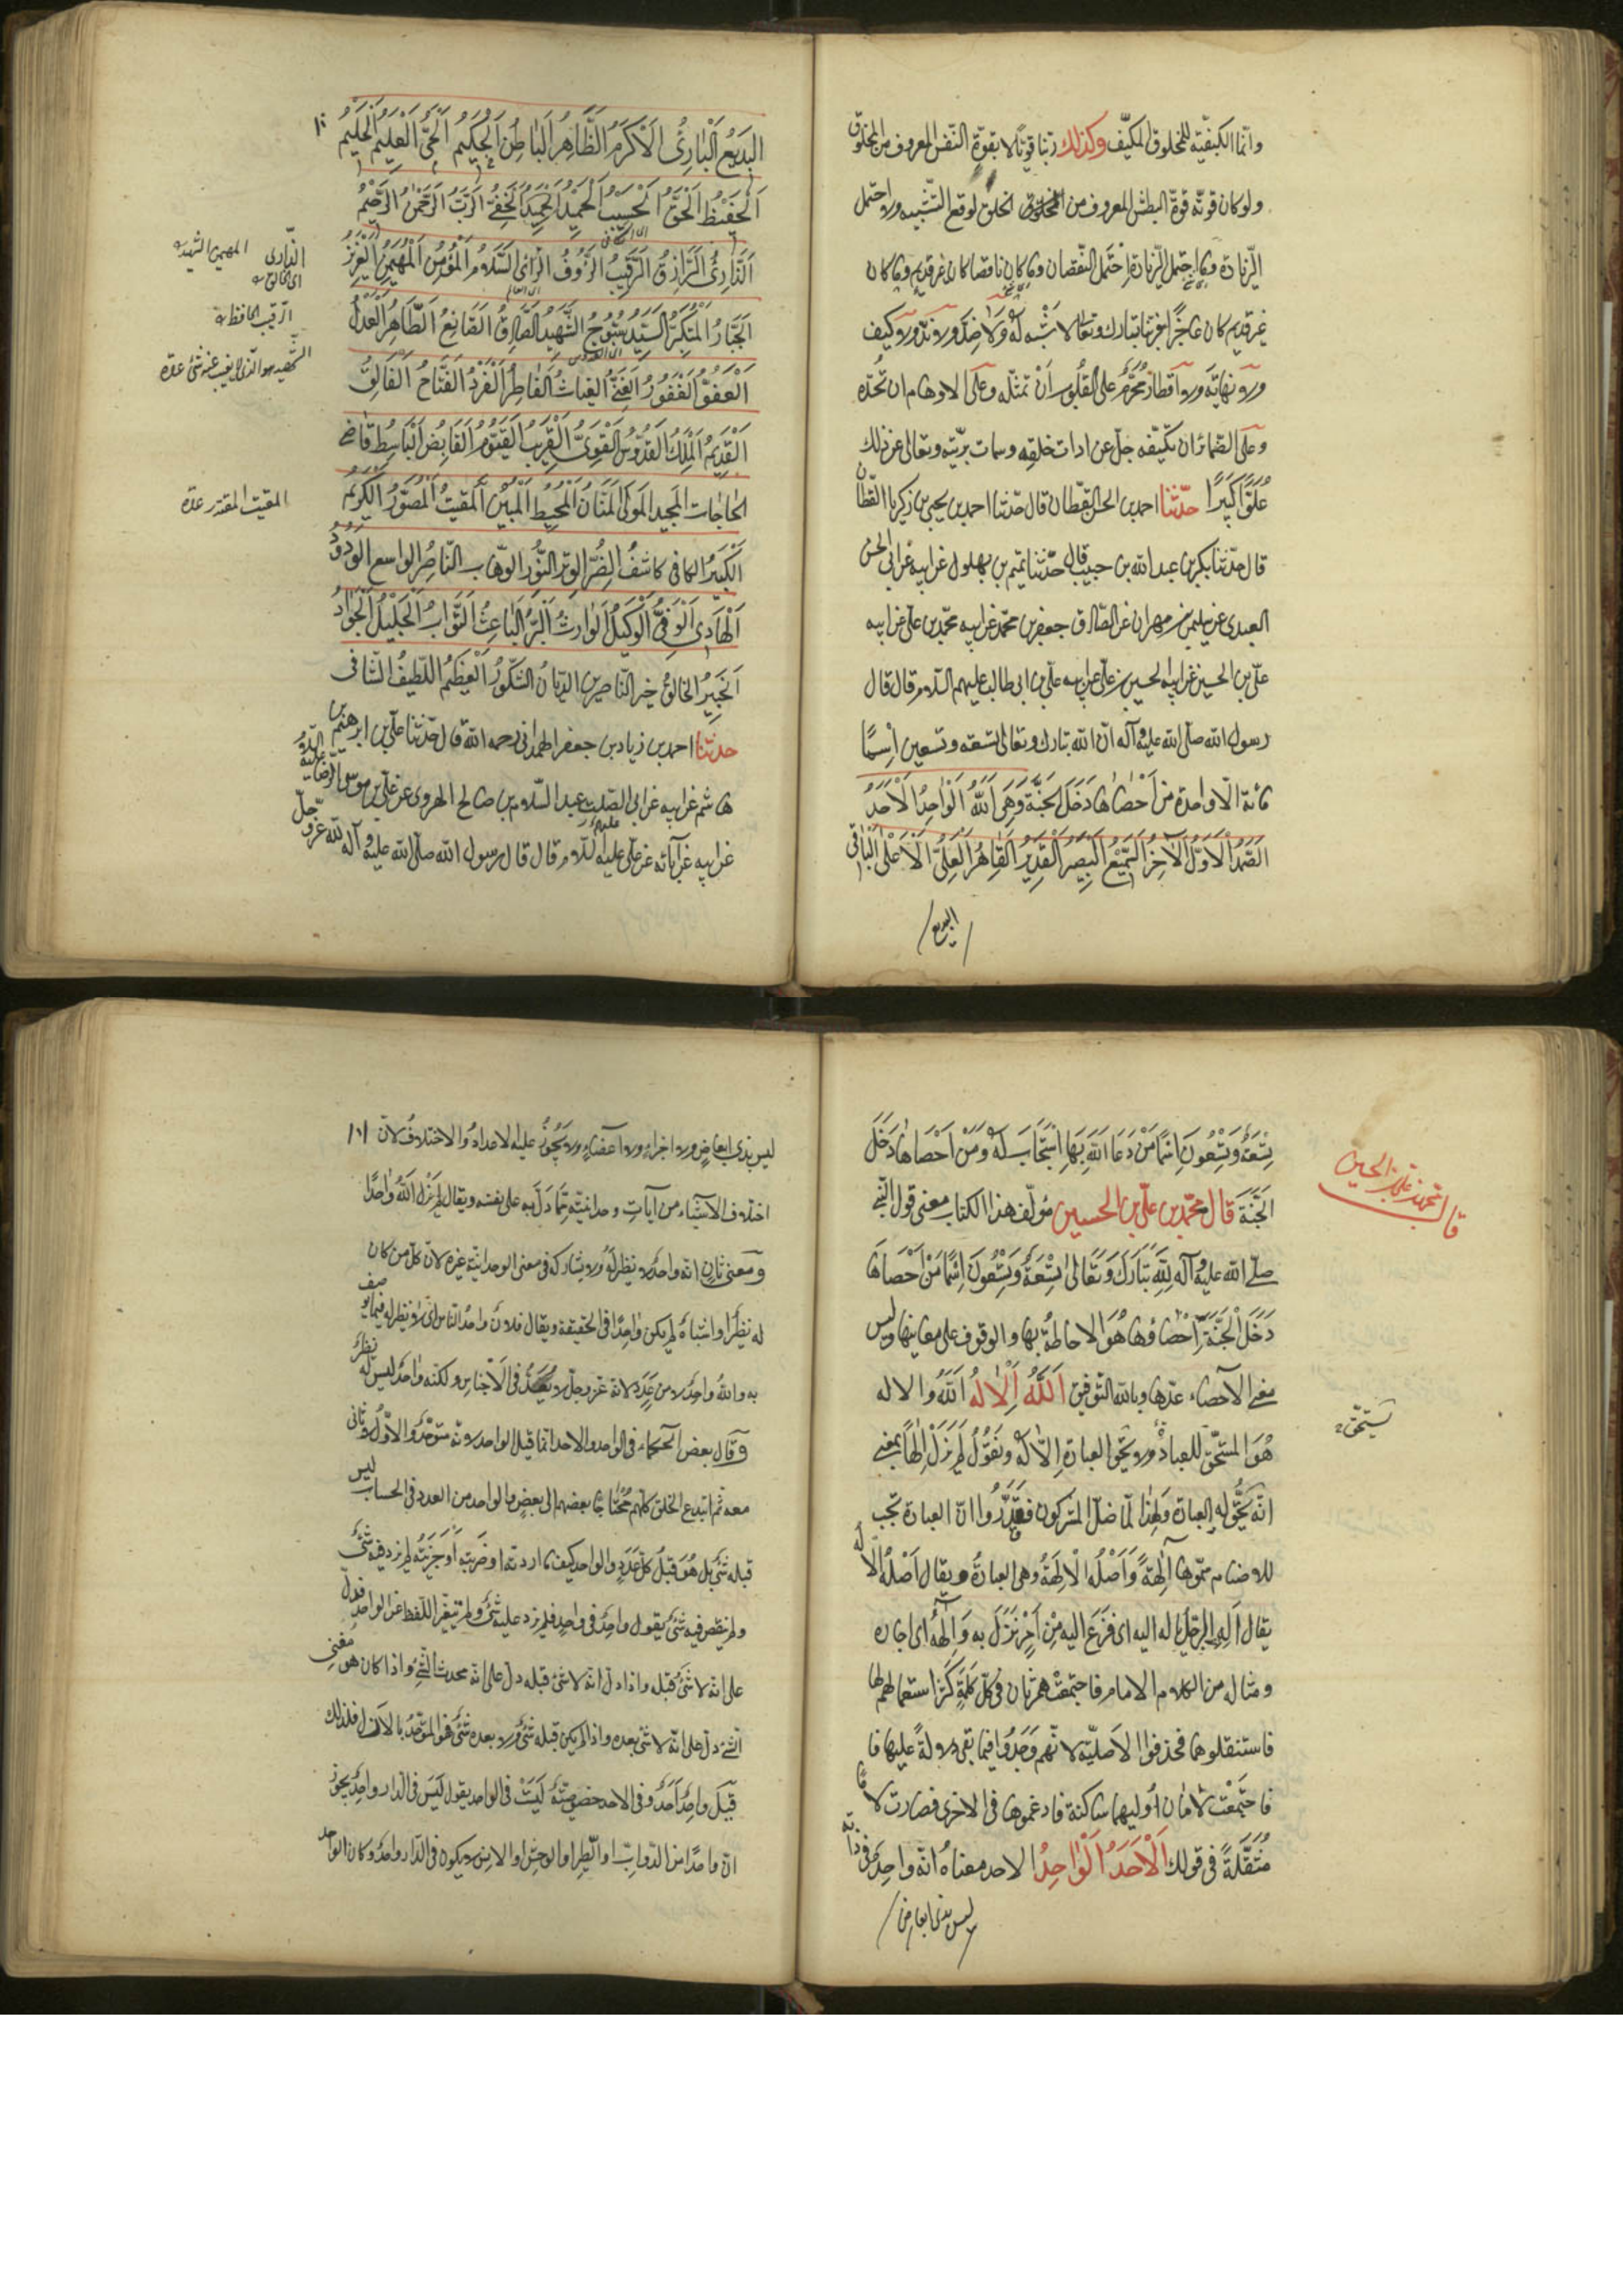 وانّما الكيفيّة للمخلوق المكيّف وكذلك ربّنا قويّا لا بقوّة النّفس المعروف من المخلوق
ولو كان قوّته قوّة البطش المعروف من الخلق لوقع التّشبيه ولاحتمل
الزّيادة وما احتمل الزّيادة احتمل النّقصان وما كان ناقصا كان غير قديم وما كان
غير قديم كان عاجزًا فربّنا تبارك وتعالى لا شبه له ولا ضدّ ولا ندّ ولا كيف
ولا نهاية ولا اقطار محرّم على القلوب ان تمثّله وعلى الاوهام ان تحدّه
وعلى الضمائر ان تكيّفه جلّ عن ادات خلقه وسمات بريّته وتعالى عن ذلك
علوًّا كبيرًا حدّثنا احمد بن الحسن القطّان قال حدّثنا احمد بن يحيى بن زكريا القطّان
قال حدّثنا بكر بن عبد الله بن حبيب قال حدّثنا تميم بن بهلول عن ابيه عن ابي الحسن
العبدى عن سليمن بن مهران عن الصّادق جعفر بن محمّد عن ابيه محمّد بن علىّ عن ابيه
علىّ بن الحسين عن ابيه الحسين بن علىّ عن ابيه علىّ بن ابى طالب عليهم السّلام قال قال
رسول الله صلّى الله عليه وآله انّ الله تبارك وتعالى تسعة وتسعين اسمًا
مائة الّا واحدة من احصاها دخل الجنّة وهى الله الواحد الاحد
الصّمد الاوّل الآخر السّميع البصير القدير القاهر العلىّ الاعلى الباقى
البديع
البديع البارئ الاكرم الظّاهر الباطن الحكيم الحىّ العليم الحليم
الحفيظ الحقّ الحسيب الحميد الحفىّ الرّبّ الرّحمن الرّحيم
الذّارئ الرّازق الرّقيب الرّؤوف الرّائى السّلام المؤمن المهيمن العزيز
الذّارى
المهيمن الشهيد
اى الخالق
الجبّار المتكبّر السّيّد سبّوح الشّهيد الصّادق الصّانع الطّاهر العدل
الرّقيب الحافظ
العفوّ الغفور الغنىّ الغياث الفاطر الفرد الفتّاح الفالق
الشّهيد هو الّذى لا يغيب عنه شئ عدّة
القديم الملك القدّوس القوىّ القريب القيّوم القابض الباسط قاضى
الحاجات المجيد المولى المنّان المحيط المبين المقيت المصوّر الكريم
المقيت المقتدر عدّة
الكبير الكافى كاشف الضّرّ الوتر النّور الوهّاب النّاصر الواسع الودود
الهادى الوفىّ الوكيل الوارث البرّ الباعث التّوّاب الجليل الجواد
الخبير الخالق خير النّاصرين الدّيّان الشّكور العظيم اللّطيف الشّافى
حدثنا احمد بن زياد بن جعفر الهمدانى رحمه الله قال حدّثنا علىّ بن ابرهيم بن
هاشم عن ابيه عن ابى الصّلت عبد السّلام بن صالح الهروى عن علىّ بن موسى الرّضا عليه السّلام
عن ابيه عن آبائه عن علىّ عليه السّلام قال قال رسول الله صلّى الله عليه وآله لله عزّ وجلّ
تسعة وتسعون اسمًا من دعا الله بها استجاب له ومن احصاها دخل
الجنّة قال محمّد بن علىّ بن الحسين مؤلّف هذا الكتاب معنى قول النّبى
قال محمد بن على بن الحسين
صلّى الله عليه وآله لله تبارك وتعالى تسعة وتسعون اسمًا من احصاها
دخل الجنّة احصاؤها هو الاحاطة بها والوقوف على معانيها وليس
معنى الاحصاء عدّها وبالله التّوفيق اَللّهُ اَلْاِلهُ الله والاله
يستحقّ
هو المستحقّ للعبادة ولا يحقّ العبادة الّا له وتقول لم يزل الهًا بمعنى
انّه يحقّ له العبادة ولهذا لمّا ضلّ المشركون فقدّروا انّ العبادة تجب
للاصنام سمّوها آلهة واصله الالهة وهى العبادة ويقال اصله الاله
يقال اله الرّجل ياله اليه اى فزع اليه من امر نزل به والهه اى اجاره
ومثاله من الكلام الامام فاجتمعت همزتان فى كلمة كثر استعمالهم لها
فاستثقلوها فحذفوا الاصليّة لانّهم وجدوا فيما بقى دلالة عليها فا
فاجتمعت لامان اوليهما ساكنة فادغموها فى الاخرى فصارت لامًا
مثقّلة فى قولك الاحد الواحد الاحد معناه انّه واحد فى ذاته
ليس بذى ابعاض
ليس بذى ابعاض ولا اجزاء ولا اعضاء ولا يجوز عليه الاعداد والاختلاف لانّ
اختلاف الاشياء من آيات وحدانيّته ممّا دلّ به على نفسه ويقال لم يزل الله واحدًا
ومعنى ثان انّه واحد لا نظير له ولا يشاركه فى معنى الوحدانيّة غيره لانّ كلّ من كان
له نظراء واشباه لم يكن واحدًا فى الحقيقة ويقال فلان واحد النّاس اى لا نظير له فيما يوصف
به والله واحد لا من عدد لانّه عزّ وجلّ لا يعدّ فى الاجناس ولكنّه واحد ليس له نظير
وقال بعض الحكماء فى الواحد والاحد انّما قيل الواحد لانّه متوحّد والاوّل لا ثانى
معه ثمّ ابتدع الخلق كلّهم محتاجًا بعضهم الى بعض والواحد من العدد فى الحساب ليس
قبله شئ بل هو قبل كلّ عدد والواحد كيف ما اردته او ضربته او جزيته لم يزد فيه شئ
ولم ينقص فيه شئ يقول واحد فى واحد فلم يزد عليه شئ ولم يتغيّر اللّفظ عن الواحد فدلّ
على انّه لا شئ قبله واذا دلّ انّه لا شئ قبله دلّ على انّه محدث الشّئ واذا كان هو مفنى
الشّئ دلّ على انّه لا شئ بعده واذا لم يكن قبله شئ ولا بعده شئ فهو المتوحّد بالازل فلذلك
قيل واحد احد وفى الاحد خصوصيّة ليست فى الواحد يقول ليس فى الدّار واحد يجوز
انّ واحدًا من الدّوابّ او الطّير او الوحش او الانس لا يكون فى الدّار واحد وكان الواحد